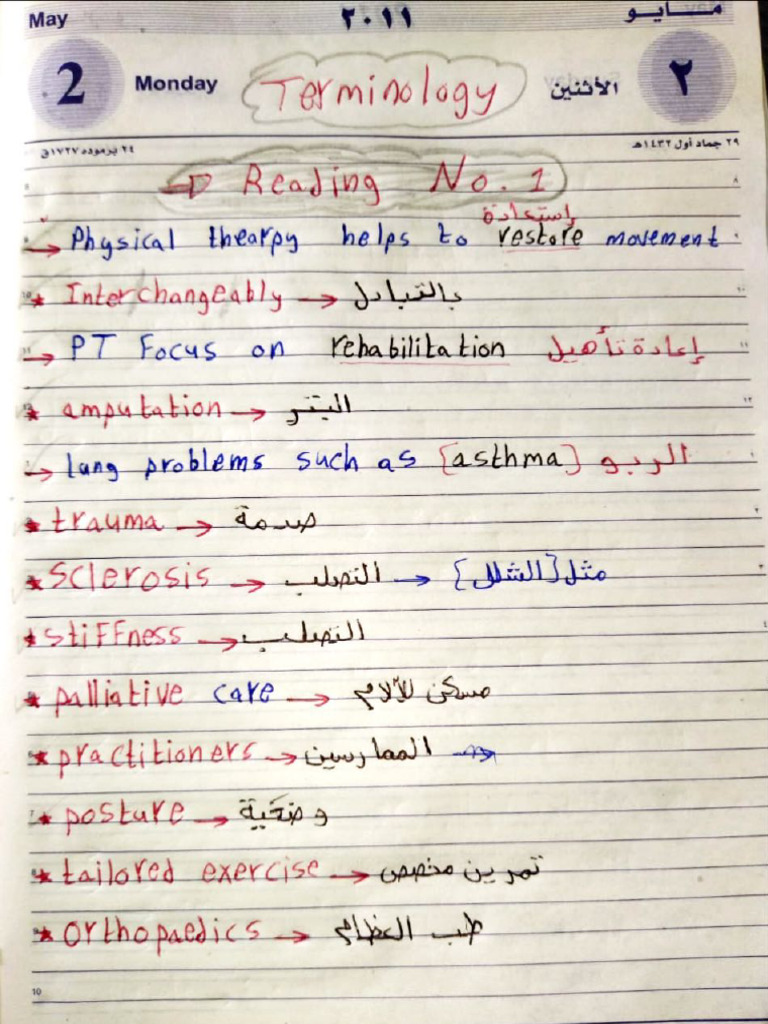 May ٢٠١١ مـايـو
2 Monday Terminology الاثنين ٢
٢٤ برموده ١٧٢٧ق ٢٩ جماد أول ١٤٣٢هـ
→ Reading No. 1
إستعادة
→ Physical thearpy helps to restore movement
* Interchangeably → بالتبادل
→ PT Focus on rehabilitation إعادة تأهيل
* amputation → البتر
→ lung problems such as [asthma] الربو
* trauma → صدمة
* Sclerosis → التصلب → مثل [الشلل]
* stiffness → التصلب
* palliative care → مسكن للآلام
* practitioners → الممارسين →
* posture → وضعية
* tailored exercise → تمرين مخصص
* orthopaedics → طب العظام